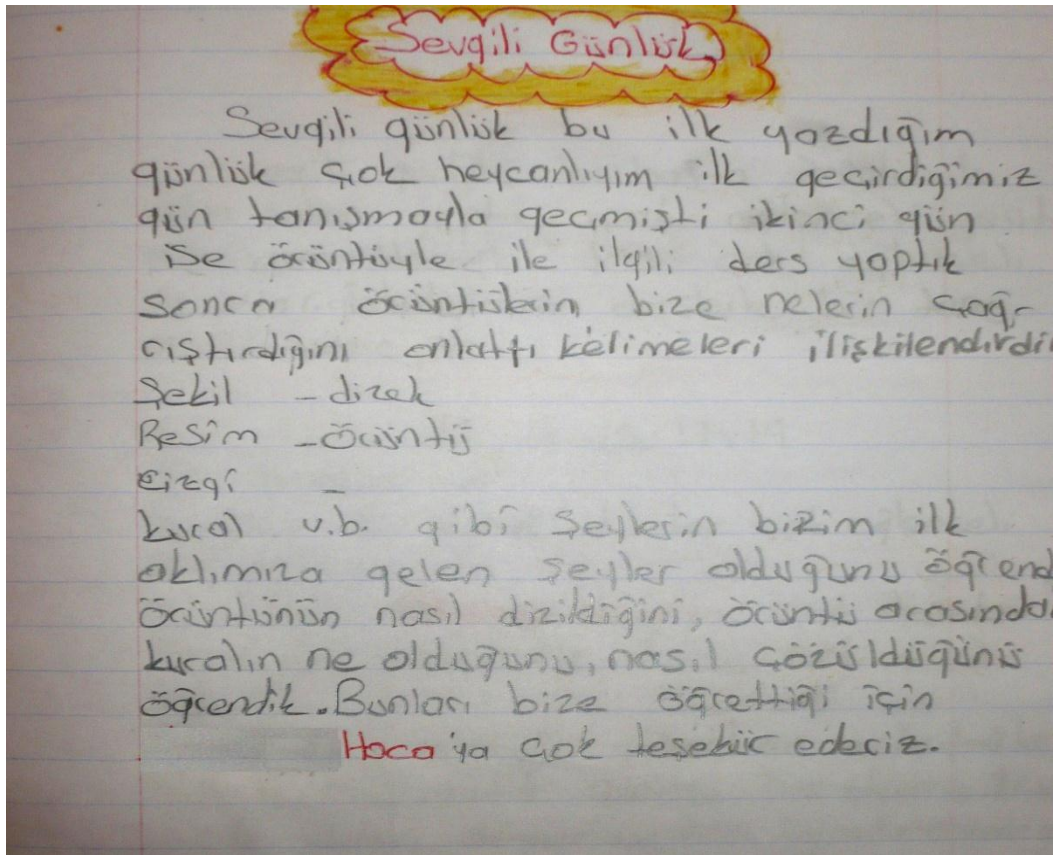 Sevgili Günlük
Sevgili günlük bu ilk yazdığım
günlük çok heycanlıyım ilk geçirdiğimiz
gün tanışmayla geçmişti ikinci gün
ise örüntüyle ile ilgili ders yaptık
sonra örüntülerin bize nelerin çağ-
rıştırdığını anlattı kelimeleri ilişkilendirdi
Şekil - dizek
Resim - örüntü
Çizgi -
kural v.b. gibi şeylerin bizim ilk
aklımıza gelen şeyler olduğunu öğrend
örüntünün nasıl dizildiğini, örüntü arasında
kuralın ne olduğunu, nasıl çözüldüğünü
öğrendik. Bunları bize öğrettiği için
Hoca'ya çok teşekür ederiz.